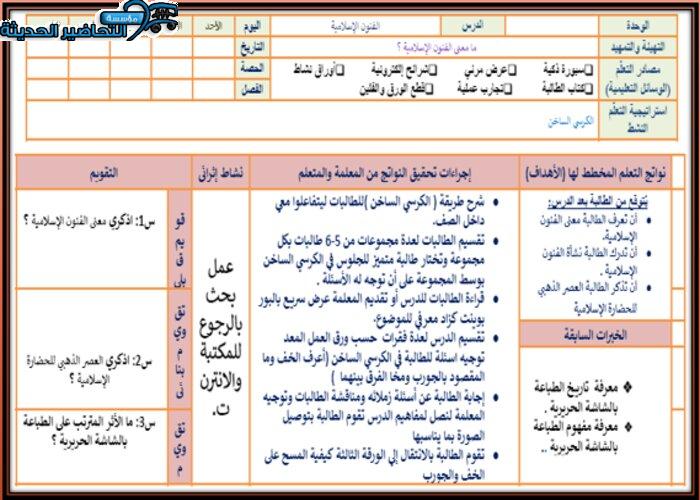 مؤسسة
التحاضير الحديثة
الوحدة
الدرس
الفنون الإسلامية
اليوم
الأحد
التهيئة والتمهيد
ما معنى الفنون الإسلامية ؟
التاريخ
مصادر التعلم
(الوسائل التعليمية)
سبورة ذكية
عرض مرئي
شرائح إلكترونية
أوراق نشاط
الحصة
كتاب الطالبة
تجارب عملية
قطع الورق والفلين
الفصل
استراتيجية التعلم
النشط
الكرسي الساخن
نواتج التعلم المخطط لها (الأهداف)
إجراءات تحقيق النواتج من المعلمة والمتعلم
نشاط إثرائى
التقويم
يُتوقع من الطالبة بعد الدرس:
أن تعرف الطالبة معنى الفنون
الإسلامية.
أن تدرك الطالبة نشأة الفنون
الإسلامية .
أن تذكر الطالبة العصر الذهبي
للحضارة الإسلامية
الخبرات السابقة
معرفة تاريخ الطباعة
بالشاشة الحريرية.
معرفة مفهوم الطباعة
بالشاشة الحريرية ..
شرح طريقة ( الكرسي الساخن )للطالبات ليتفاعلوا معي
داخل الصف.
تقسيم الطالبات لعدة مجموعات من 5-6 طالبات بكل
مجموعة وتختار طالبة متميز للجلوس في الكرسي الساخن
بوسط المجموعة على أن توجه له الأسئلة .
قراءة الطالبات للدرس أو تقديم المعلمة عرض سريع بالبور
بوينت كزاد معرفي للموضوع.
تقسيم الدرس لعدة فقرات حسب ورق العمل المعد
توجيه اسئلة للطالبة في الكرسي الساخن (أعرف الخف وما
المقصود بالجورب ومخا الفرق بينهما )
إجابة الطالبة عن أسئلة زملائه ومناقشة الطالبات وتوجيه
المعلمة لنصل لمفاهيم الدرس تقوم الطالبة بتوصيل
الصورة بما يناسبها
تقوم الطالبة بالانتقال إلي الورقة الثالثة كيفية المسح على
الخف والجورب
عمل
بحث
بالرجوع
للمكتبة
والانترن
ت.
قو
يم
ق
بلي
س1: اذكري معنى الفنون الإسلامية ؟
تق
وي
م
بنا
ئى
س2: اذكري العصر الذهبي للحضارة
الإسلامية ؟
تق
وي
م
س3: ما الأثر المترتب على الطباعة
بالشاشة الحريرية ؟